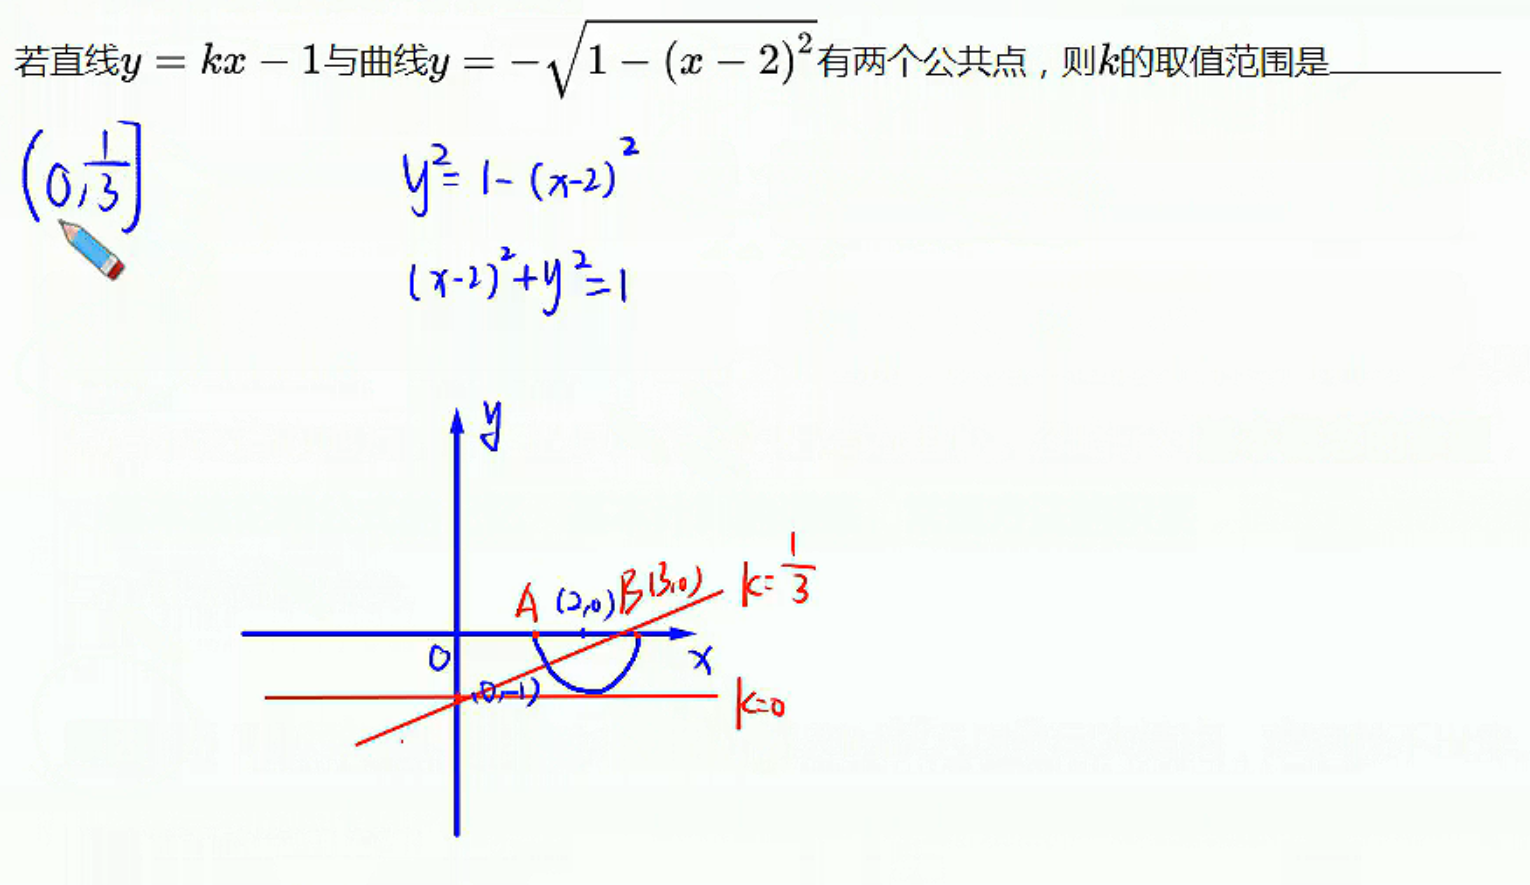 若直线y = kx − 1与曲线y = −√(1 − (x − 2)²)有两个公共点，则k的取值范围是________
(0, 1/3]
y² = 1 - (x-2)²
(x-2)² + y² = 1
y
k = 1/3
A (2,0) B(3,0)
0 x
(0,-1)
k=0